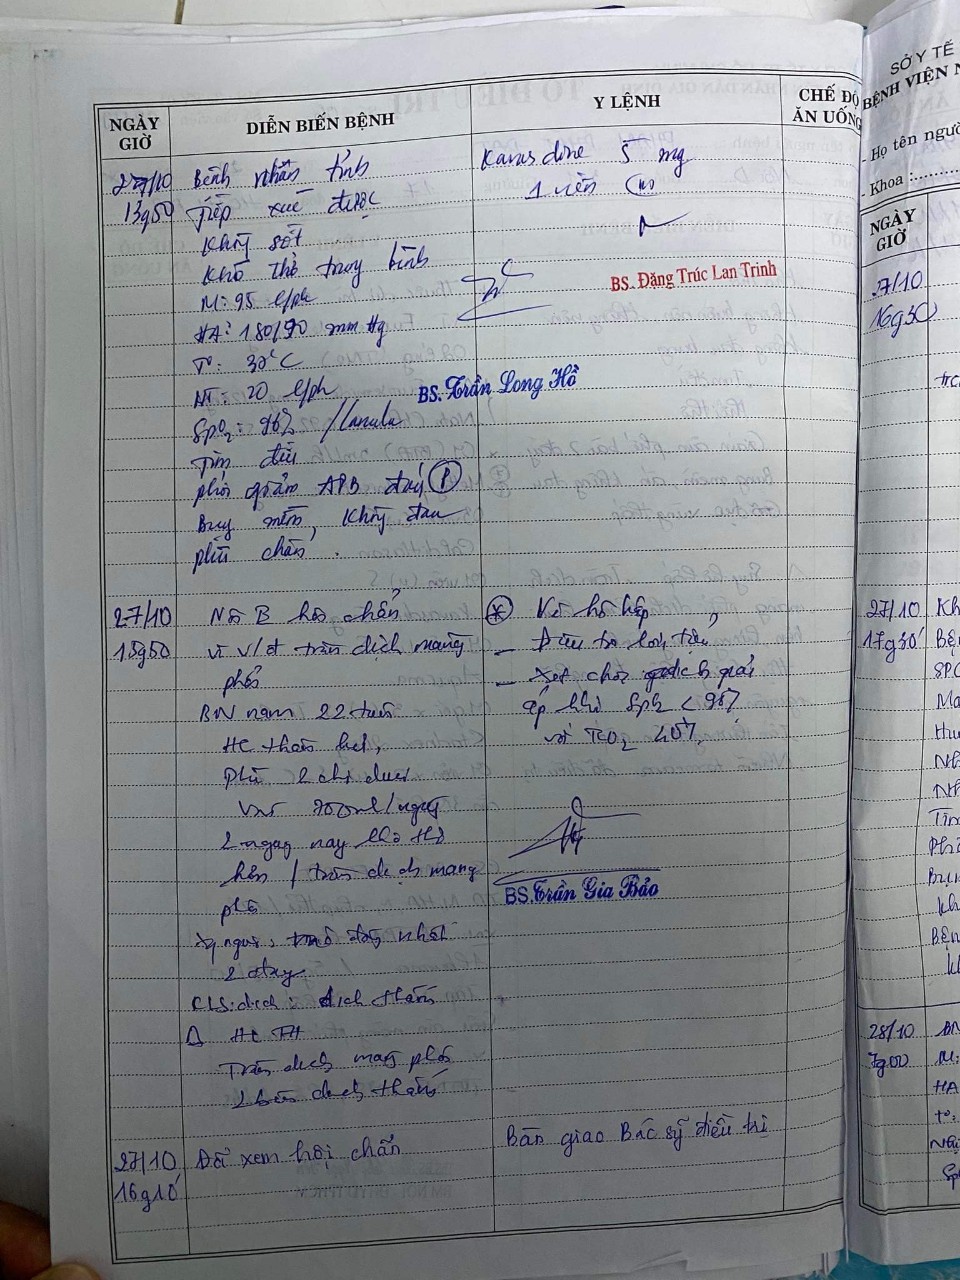 NGÀY GIỜ
DIỄN BIẾN BỆNH
Y LỆNH
CHẾ ĐỘ ĂN UỐNG
27/10
13g50
Bệnh nhân tỉnh
Tiếp xúc được
Không sốt
Khó thở trung bình
M: 95 l/ph
HA: 180/90 mmHg
T°: 37°C
NT: 20 l/ph
SpO₂: 96% /Canula
Tim đều
phổi giảm APB đáy (P)
Bụng mềm, không đau
phù chân.
Kavasdine 5 mg
1 viên (u)
BS. Đặng Trúc Lan Trinh
BS. Trần Long Hồ
27/10
15g50
Nội B hội chẩn
vì v/đ tràn dịch màng
phổi
BN nam 22 tuổi
HC thận hư,
Phù 2 chi dưới
VNT 700ml/ngày
2 ngày nay khó thở
hơn / tràn dịch màng
phổi
2 đáy
CLS: dịch: dịch thấm
Δ HC TH
Tràn dịch màng phổi
2 bên dịch thấm
* Về hô hấp
– Điều trị lợi tiểu
– Xét chọc dịch giải
áp khi SpO₂ < 95%
với FiO₂ 40%
BS. Trần Gia Bảo
27/10
16g10
Đã xem hội chẩn
Bàn giao Bác sỹ điều trị
SỞ Y TẾ
BỆNH VIỆN N
- Họ tên ngườ
- Khoa :
NGÀY GIỜ
27/10
16g30
27/10
17g30
Kh
Bệ
SPO
HA
NT
Tim
Phổ
Bụn
Kh
Bện
28/10
7g00
BN
M:
HA
T°: